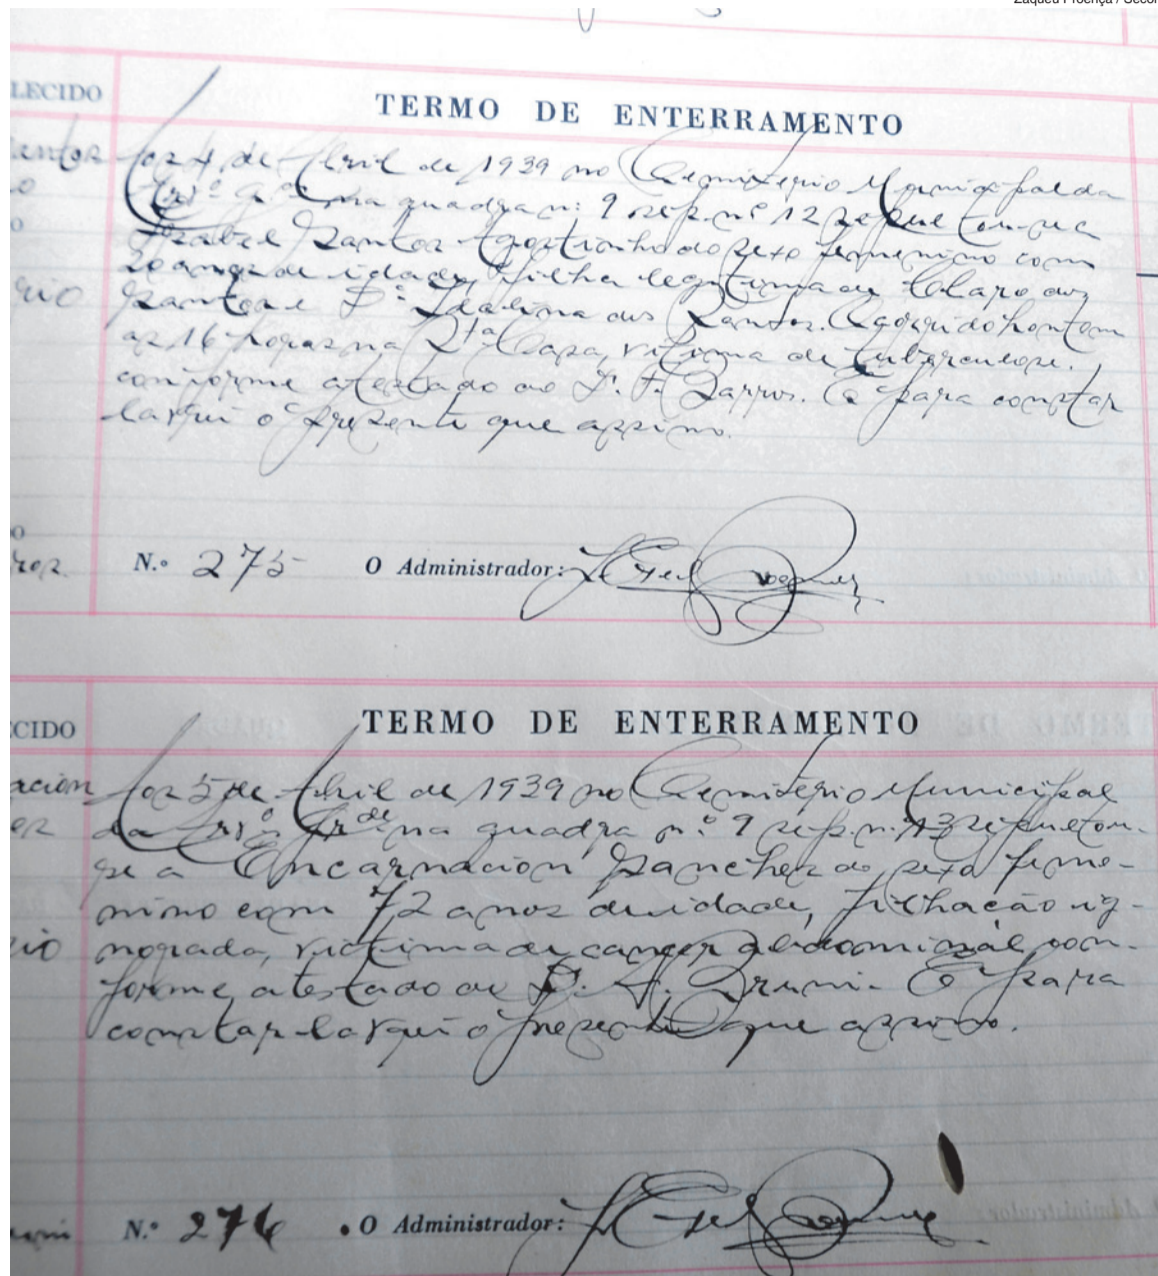 Zaqueu Proença / Secor
LECIDO
TERMO DE ENTERRAMENTO
Aos 4 de Abril de 1939 no Cemiterio Municipal da
na quadra n: 9 sep. nº 12 sepultou-se a
Izabel Santos Agostinho do sexo femenino com
20 anos de idade, filha legitima de Claro dos
Santos e Dª dos Santos. ocorrido hontem
as 16 horas na Sta Casa, vitima de tuberculose.
conforme atestado do D. F. Barros. E para constar
lavrei o presente que assino.
N.º 275 O Administrador:
CIDO
TERMO DE ENTERRAMENTO
Aos 5 de Abril de 1939 no Cemitério Municipal
da na quadra n.º 9 sep. n. 13 sepultou-
se a Encarnacion Sanches do sexo feme-
nino com 72 anos de idade, filhação ig-
norada, victima de cancer abdominal con-
forme atestado do D. A. Bruni. E para
constar lavrei o presente que assino.
N.º 276 O Administrador: